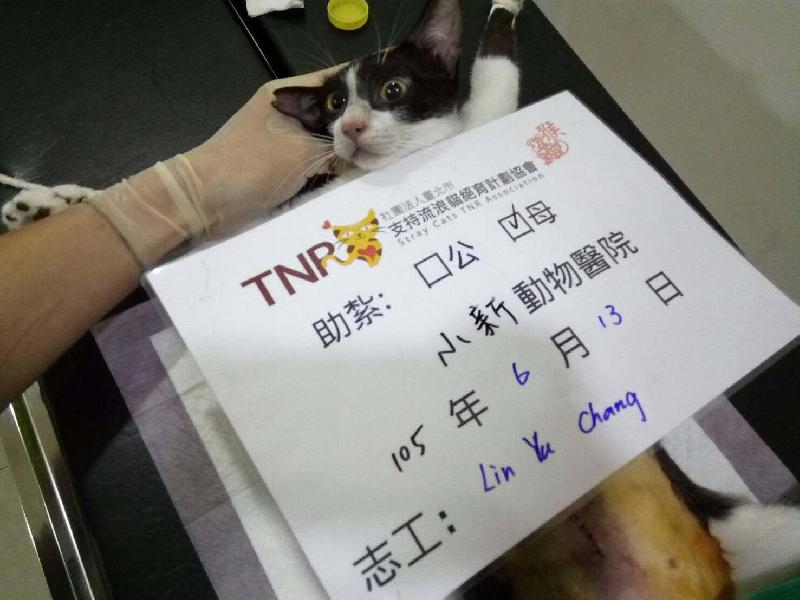 TNR
社團法人臺北市
支持流浪貓絕育計劃協會
Stray Cats TNR Association
助紮：□公 ☑母
小新動物醫院
105年6月13日
志工：Lin Yu Chang